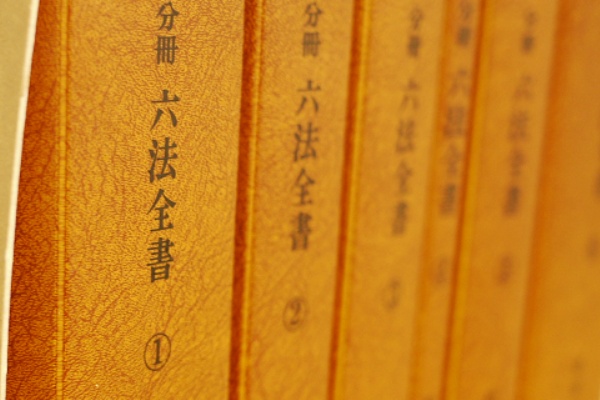 分冊 六法全書 ①
分冊 六法全書 ②
分冊 六法全書 ③
分冊 六法全書
六法全書